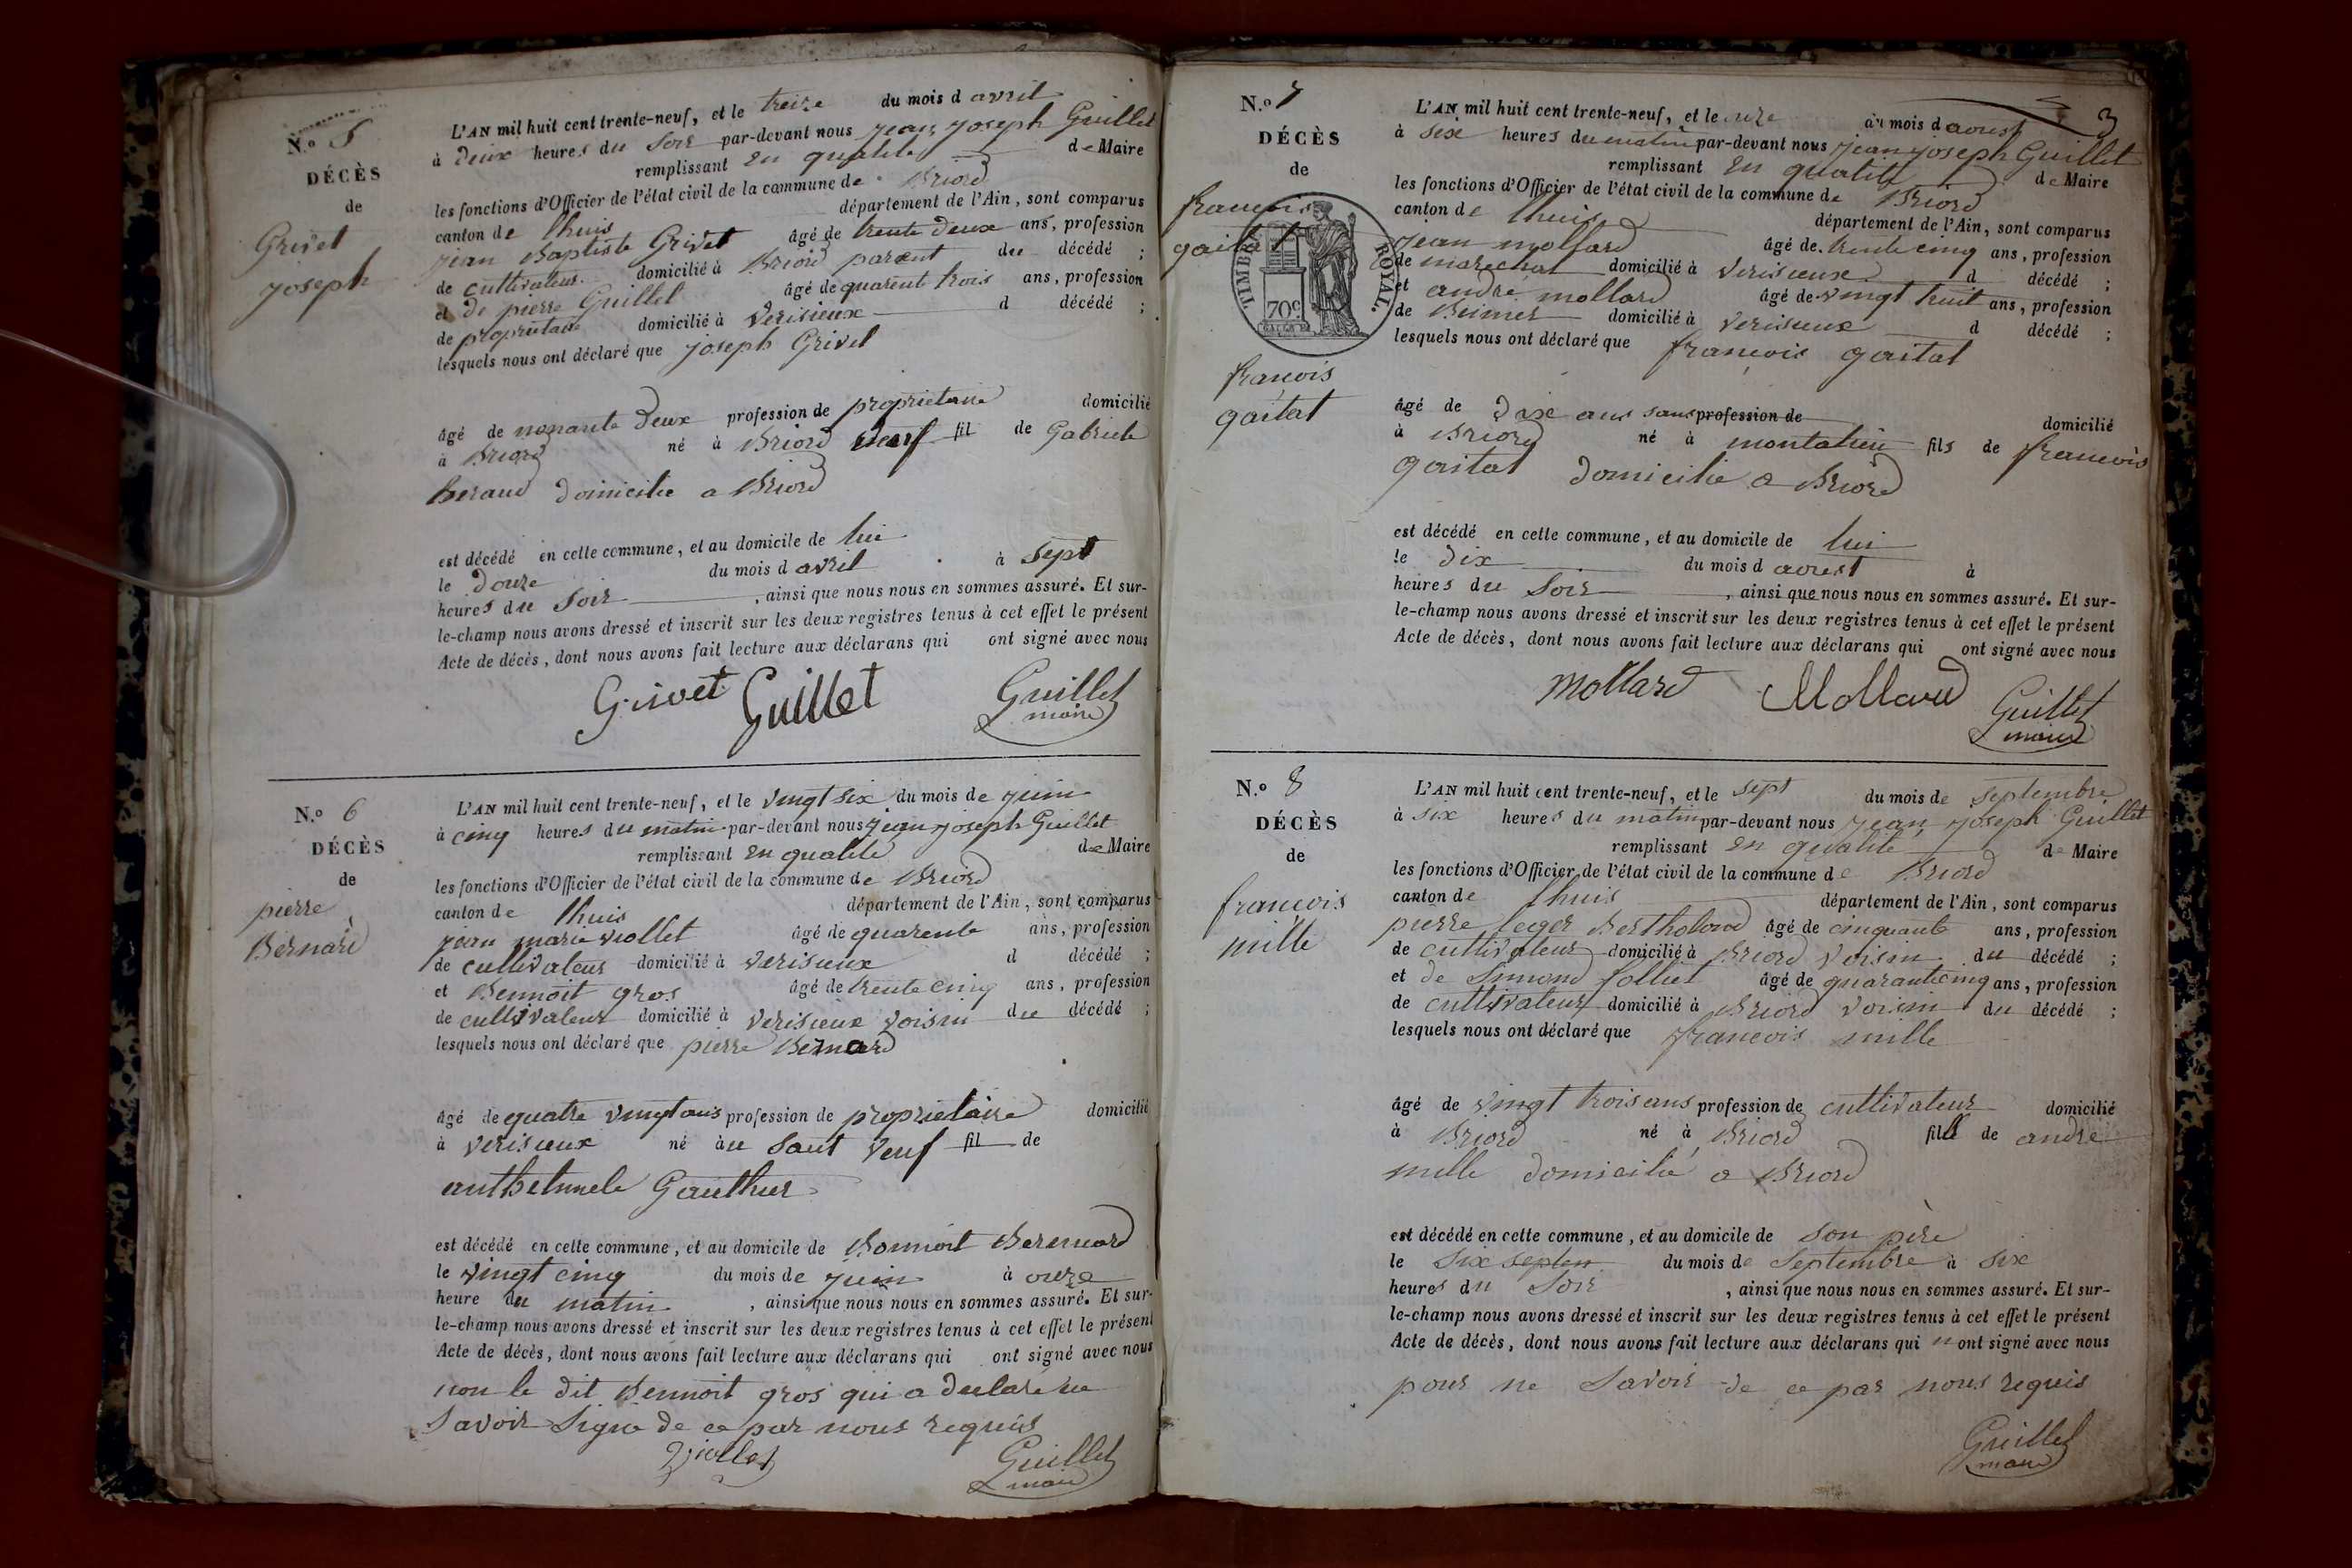 N.o 5
DÉCÈS
de
Grivet
joseph
L'AN mil huit cent trente-neuf, et le treize du mois d avril
à deux heures du soir par-devant nous jean joseph Guillet
remplissant en qualité de Maire
les fonctions d'Officier de l'état civil de la commune de Briord
canton de lhuis département de l'Ain, sont comparus
jean Baptiste Grivet âgé de trente deux ans, profession
de cultivateur domicilié à Briord parent du décédé ;
et de pierre Guillet âgé de quarent trois ans, profession
de propriétaire domicilié à Verisieux d décédé ;
lesquels nous ont déclaré que joseph Grivet
âgé de nonante deux profession de propriétaire domicilié
à Briord né à Briord veuf fil de Gabriele
Beraud domicilié a Briord
est décédé en cette commune, et au domicile de lui
le douze du mois d avril à sept
heures du soir , ainsi que nous nous en sommes assuré. Et sur-
le-champ nous avons dressé et inscrit sur les deux registres tenus à cet effet le présent
Acte de décès, dont nous avons fait lecture aux déclarans qui ont signé avec nous
Grivet Guillet Guillet
maire
N.o 6
DÉCÈS
de
pierre
Bernard
L'AN mil huit cent trente-neuf, et le vingt six du mois de juin
à cinq heures du matin par-devant nous jean joseph Guillet
remplissant en qualité de Maire
les fonctions d'Officier de l'état civil de la commune de Briord
canton de lhuis département de l'Ain, sont comparus
jean marie viollet âgé de quarente ans, profession
de cultivateur domicilié à verisieux d décédé ;
et Bennoit gros âgé de trente cinq ans, profession
de cultivateur domicilié à verisieux voisin du décédé ;
lesquels nous ont déclaré que pierre Bernard
âgé de quatre vingt ans profession de propriétaire domicilié
à verisieux né àu Saut veuf fil de
anthelmele Gauthier
est décédé en cette commune, et au domicile de Bonnoit Berernard
le vingt cinq du mois de juin à onze
heure du matin , ainsi que nous nous en sommes assuré. Et sur-
le-champ nous avons dressé et inscrit sur les deux registres tenus à cet effet le présent
Acte de décès, dont nous avons fait lecture aux déclarans qui ont signé avec nous
non le dit Bennoit gros qui a declaré ne
savoir signe de ce par nous requis
Viollet Guillet
maire
3
N.o 7
DÉCÈS
de
francois
gaitat
TIMBRE ROYAL.
70c
francois
gaitat
L'AN mil huit cent trente-neuf, et le onze du mois d aoust
à six heures du matin par-devant nous jean joseph Guillet
remplissant en qualité de Maire
les fonctions d'Officier de l'état civil de la commune de Briord
canton de lhuis département de l'Ain, sont comparus
jean mollard âgé de trente cinq ans, profession
de marechal domicilié à verisieux d décédé ;
et andré mollard âgé de vingt huit ans, profession
de domicilié à verisieux d décédé ;
lesquels nous ont déclaré que françois gaitat
âgé de dix ans sans profession de domicilié
à Briord né à montalieu fils de francois
gaitat domicilié a Briord
est décédé en cette commune, et au domicile de lui
le dix du mois d aoust à
heures du soir , ainsi que nous nous en sommes assuré. Et sur-
le-champ nous avons dressé et inscrit sur les deux registres tenus à cet effet le présent
Acte de décès, dont nous avons fait lecture aux déclarans qui ont signé avec nous
Mollard Mollard Guillet
maire
N.o 8
DÉCÈS
de
francois
mille
L'AN mil huit cent trente-neuf, et le sept du mois de septembre
à six heures du matin par-devant nous jean joseph Guillet
remplissant en qualité de Maire
les fonctions d'Officier de l'état civil de la commune de Briord
canton de lhuis département de l'Ain, sont comparus
pierre leger Bertholond âgé de cinquante ans, profession
de cultivateur domicilié à Briord voisin du décédé ;
et de Simond folliet âgé de quarantcinq ans, profession
de cultivateur domicilié à Briord voisin du décédé ;
lesquels nous ont déclaré que francois mille
âgé de vingt trois ans profession de cultivateur domicilié
à Briord né à Briord fils de andre
mille domicilié a Briord
est décédé en cette commune, et au domicile de son père
le six septen du mois de septembre à six
heures du soir , ainsi que nous nous en sommes assuré. Et sur-
le-champ nous avons dressé et inscrit sur les deux registres tenus à cet effet le présent
Acte de décès, dont nous avons fait lecture aux déclarans qui n ont signé avec nous
pour ne savoir de ce par nous requis
Guillet
maire